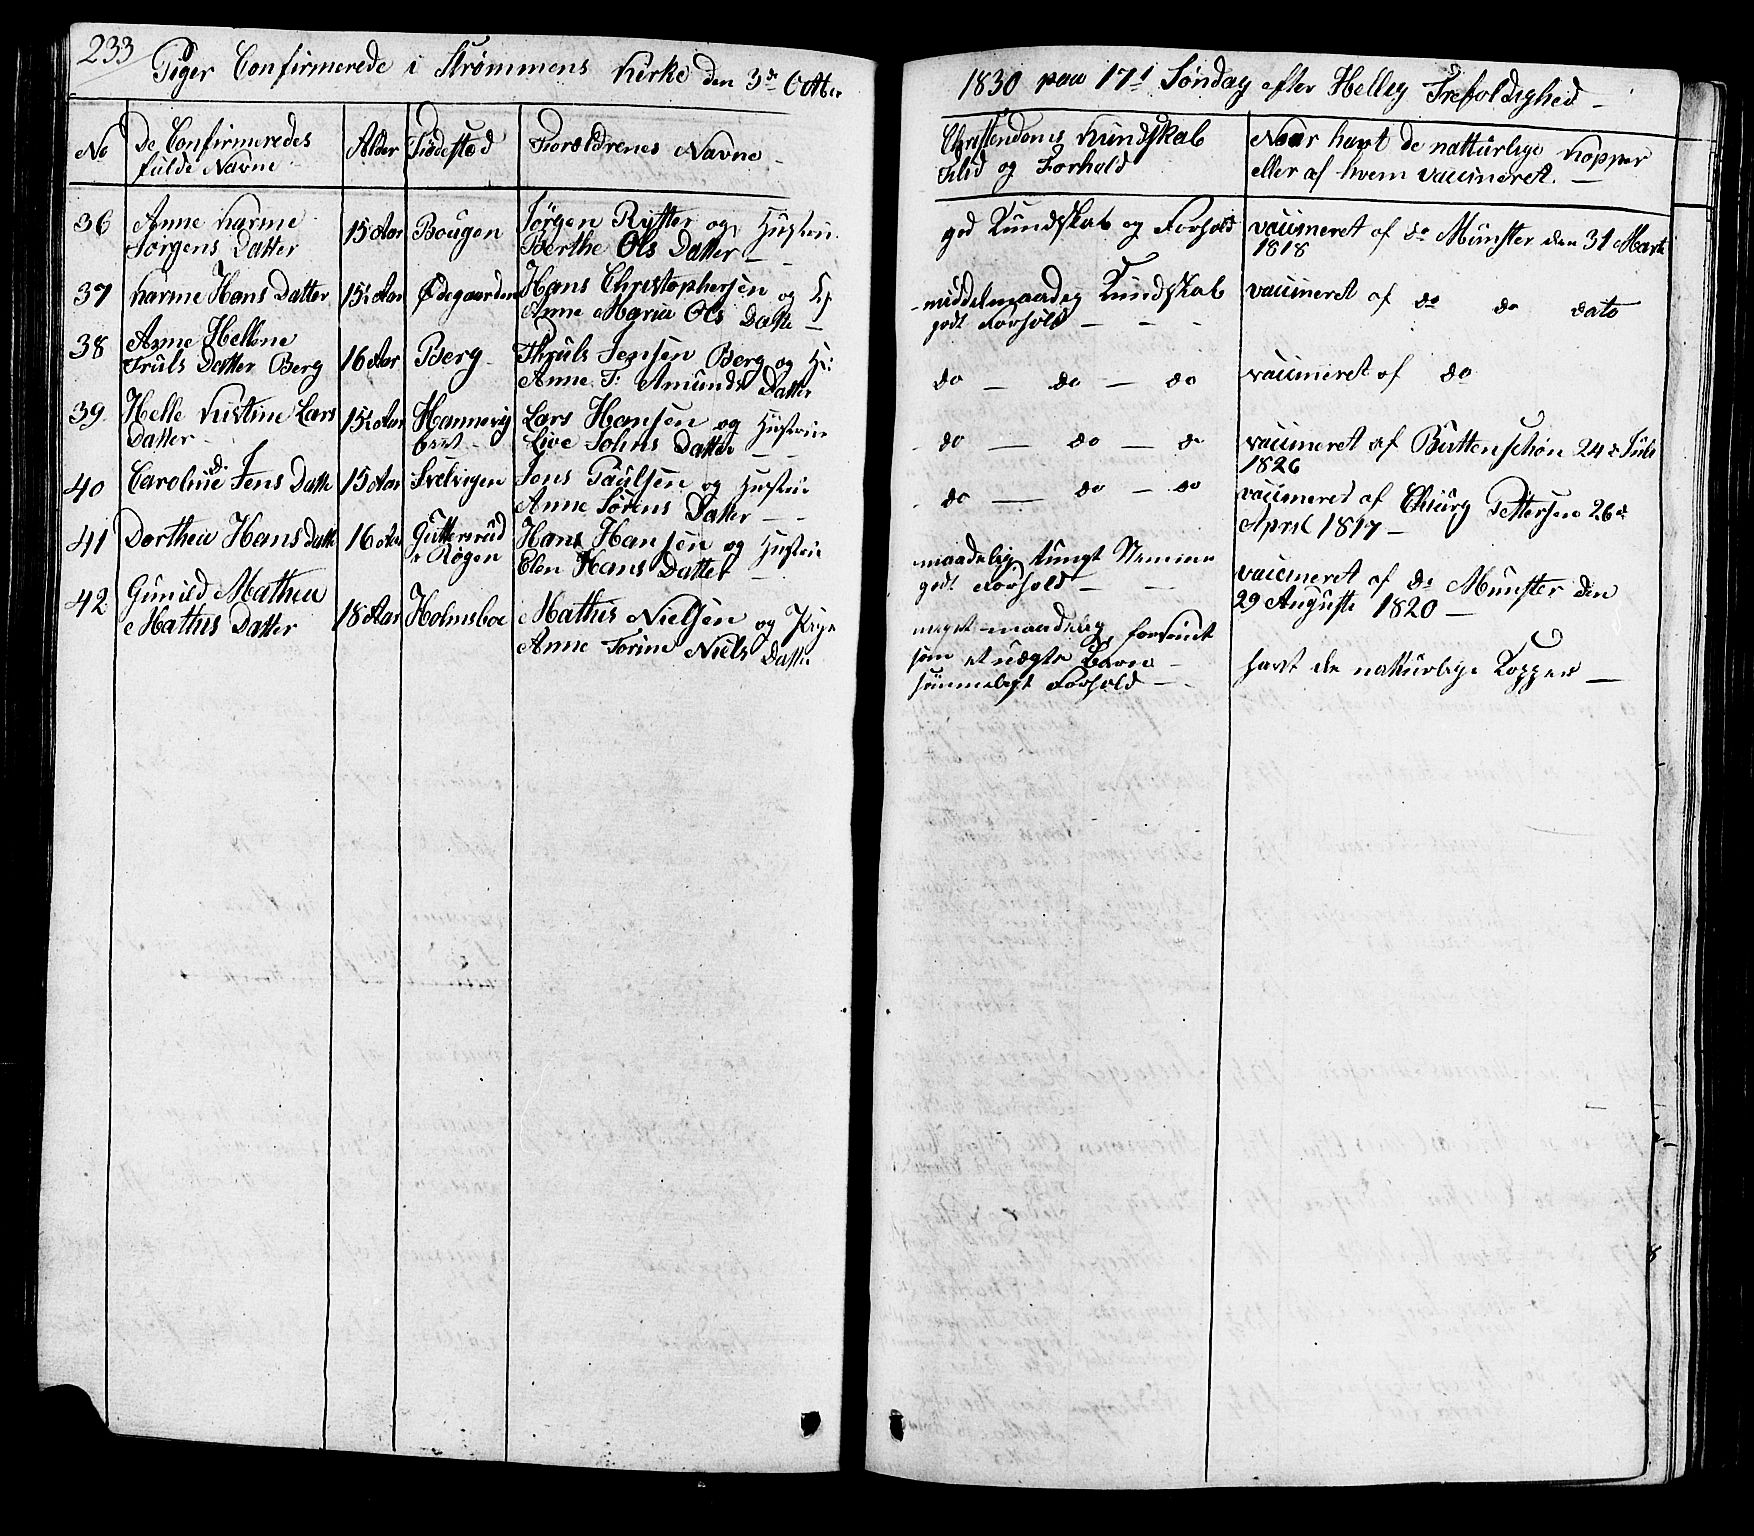 233
Piger Confirmerede i Strømmens Kirke den 3de Octbr 1830 paa 17d Søndag efter Hellig Trefoldighed –
No
De Confirmeredes
fulde Navne
Alder
Fødested
Forældrenes Navne –
Christendoms Kundskab
Flid og Forhold
Naar havt de naturlige Kopper
eller af hvem vaccineret. –
36
Anne Karine
Jørgens Datter
15 Aar
Bougen
Jørgen Rytter og Hustrue
Berthe Ols Datter –
god Kundskab og Forhold
vaccineret af do Münster den 31 Marti
1818
37
Karine Hans Datter
15½ Aar
Ødegaarden
Hans Christophersen og
Anne Maria Ols Datter –
middelmaadig Kundskab
godt Forhold – – –
vaccineret af do do dato
38
Anne Hellene
Truls Datter Berg
16 Aar
Berg
Thruls Jensen Berg og H:
Anne T: Amunds Datter
do – do – do
vaccineret af do
39
Helle Kistine Lars
Datter
15½ Aar
Lars Hansen og Hustrue
Live Johns Datter – –
do – do – do
vaccineret af Buttenschøn 24de Juli
1826
40
Caroline Jens Datt
15 Aar
Svelvigen
Jens Paulsen og Hustrue
Anne Sørens Datter – –
do – do – do
vaccineret af Chiurg Pettersen 26de
April 1817 –
41
Dorthea Hans Datt
16 Aar
Guttersrud
i Røgen
Hans Hansen og Hustrue
Elen Hans Datter –
maadelig tungt Nemme
godt Forhold –
vaccineret af do Münster den
29 Auguste 1820 –
42
Gunild Mathea
Mathis Datter
18 Aar
Holmsboe
Mathis Nielsen og Pige
Anne Torine Niels Datter
meget maadelig forsømt
som et uægte Barn –
sømmeligt Forhold –
havt de naturlige Kopper –